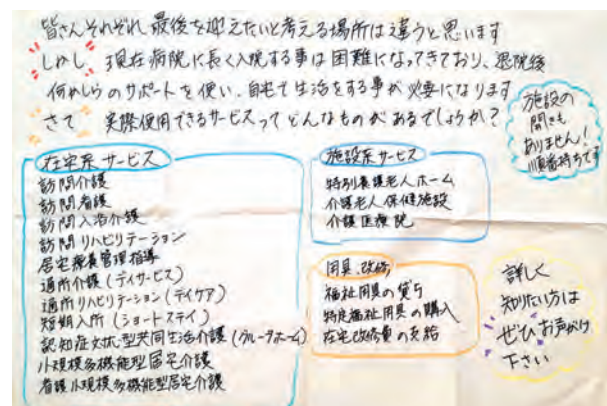 皆さんそれぞれ最後を迎えたいと考える場所は違うと思います
しかし 現在病院に長く入院する事は困難になってきており、退院後
何かしらのサポートを使い、自宅で生活をする事が必要になります
さて 実際使用できるサービスってどんなものがあるでしょうか？
施設の
開きも
ありません！
順番待ちです
在宅系サービス
訪問介護
訪問看護
訪問入浴介護
訪問リハビリテーション
居宅療養管理指導
通所介護（デイサービス）
通所リハビリテーション（デイケア）
短期入所（ショートステイ）
認知症対応型共同生活介護（グループホーム）
小規模多機能型居宅介護
看護小規模多機能型居宅介護
施設系サービス
特別養護老人ホーム
介護老人保健施設
介護医療院
用具、改修
福祉用具の貸与
特定福祉用具の購入
在宅改修費の支給
詳しく
知りたい方は
ぜひお声がけ
下さい